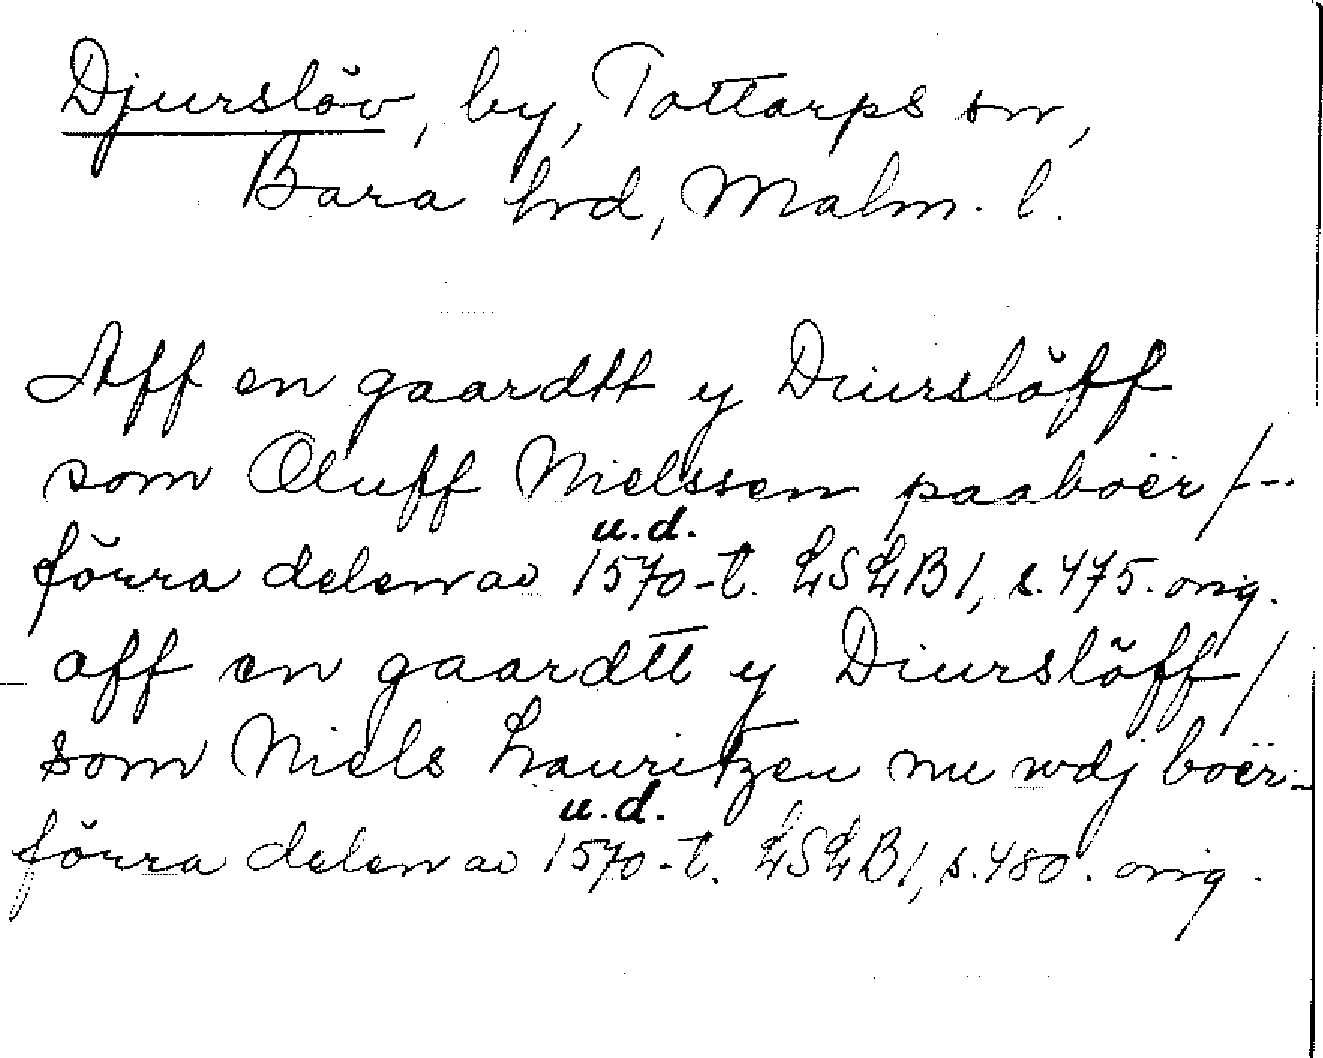 Djurslöv, by, Tottarps sn,
Bara hrd, Malm. l.
Aff en gaardtt y Diurslöff
som Oluff Nielssen paaboër /--
u.d.
förra delen av 1570-t. LSLB1, s. 475. orig.
aff en gaardtt y Diurslöff /
som Niels Lauritzen nu wdj boër-
u.d.
förra delen av 1570-t. LSLB1, s. 480. orig.